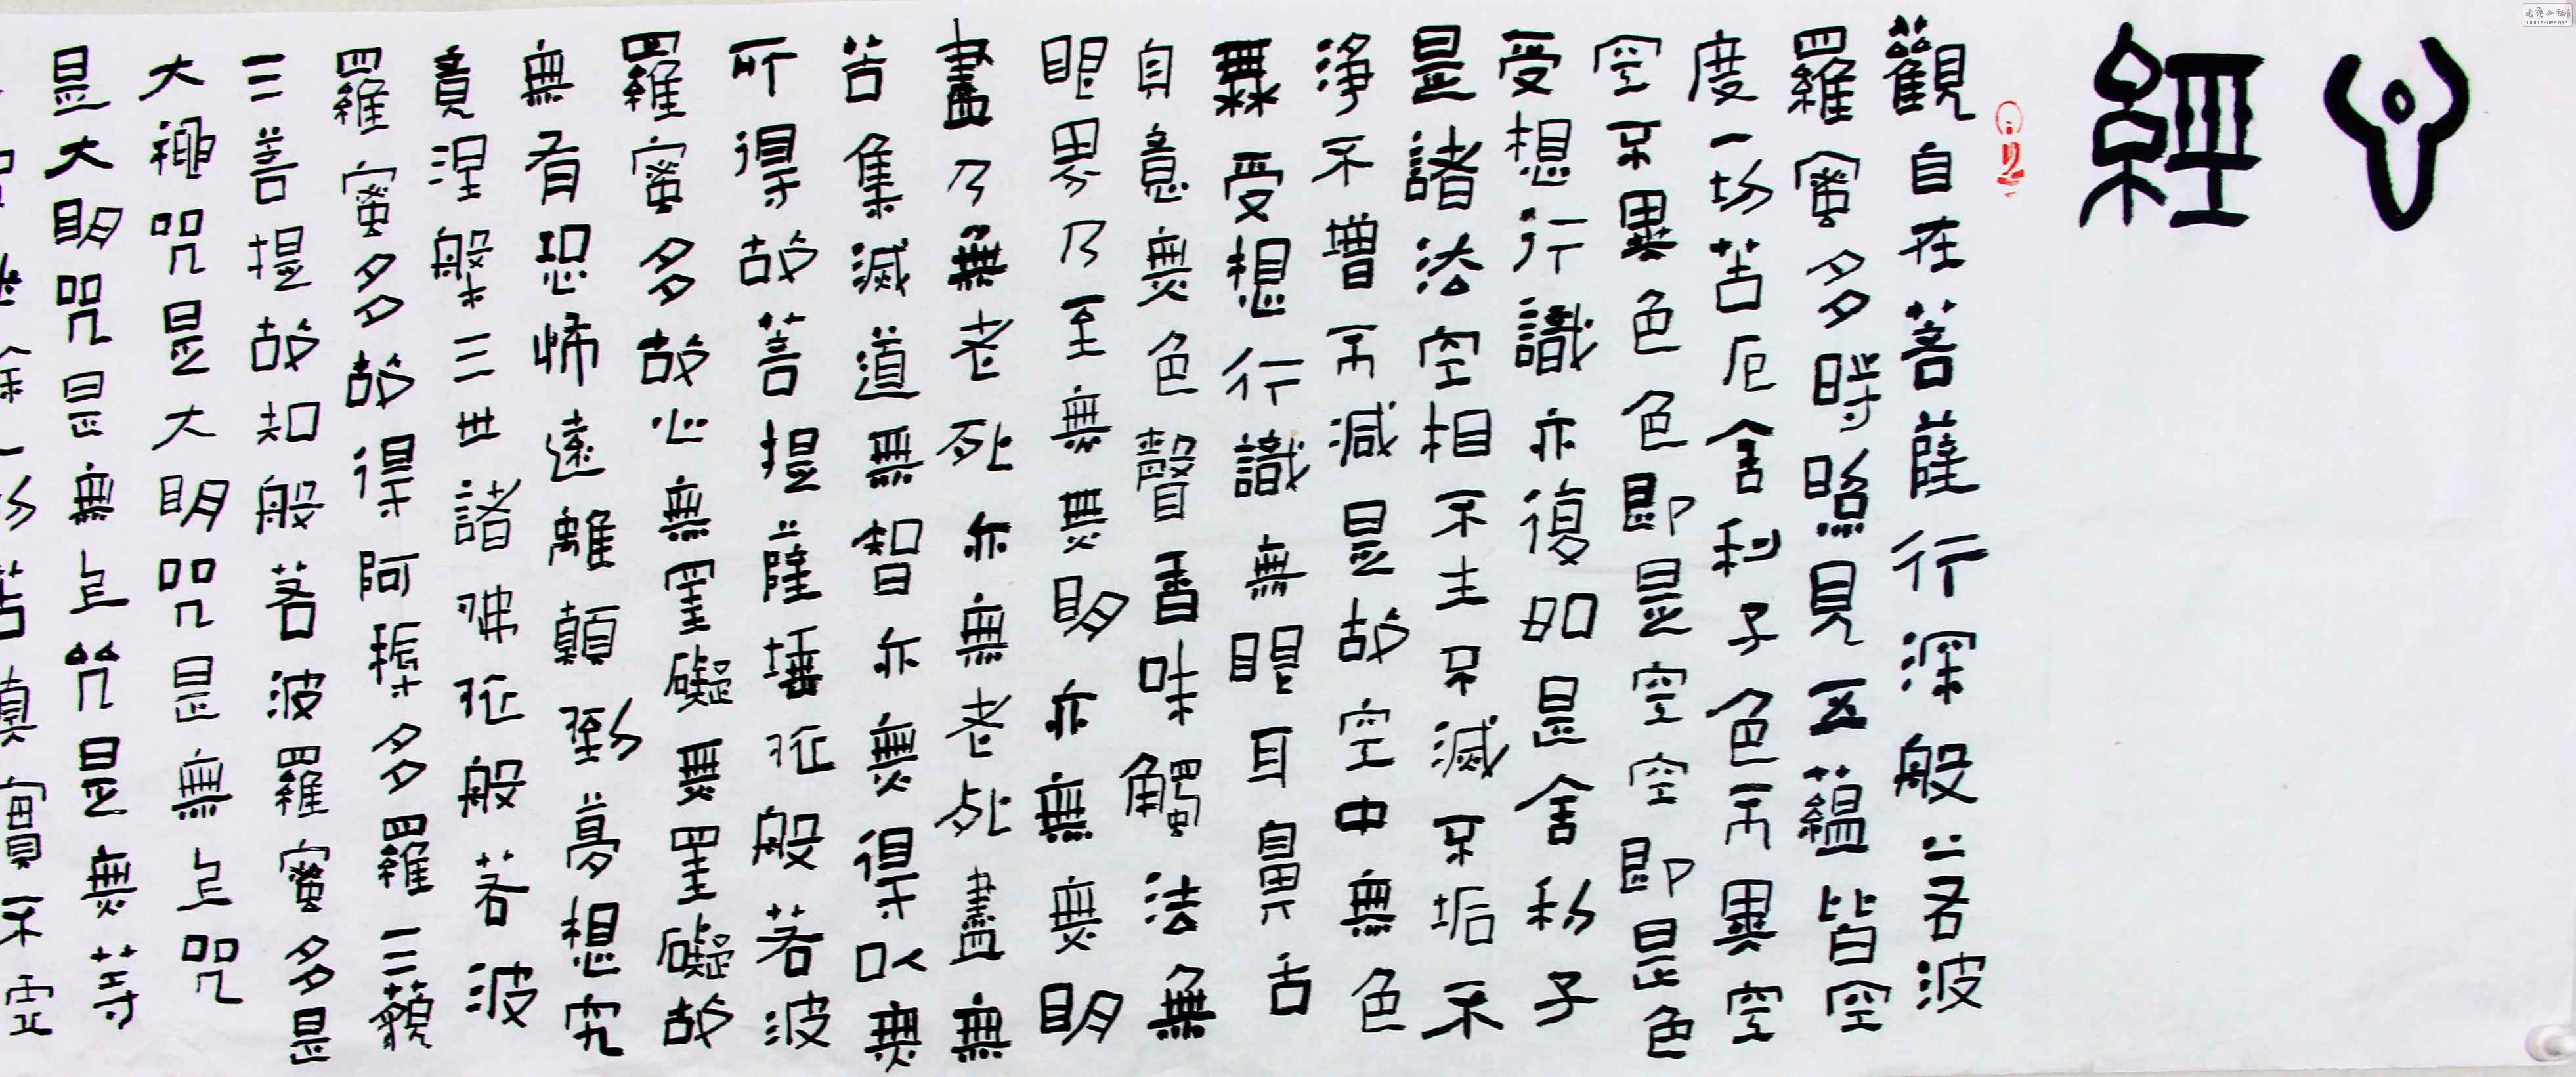 心經
觀自在菩薩行深般若波
羅蜜多時照見五蘊皆空
度一切苦厄舍利子色不異空
空不異色色即是空空即是色
受想行識亦復如是舍利子
是諸法空相不生不滅不垢不
淨不增不減是故空中無色
無受想行識無眼耳鼻舌
自意無色聲香味觸法無
眼界乃至無無明亦無無明
盡乃無老死亦無老死盡無
苦集滅道無智亦無得以無
所得故菩提薩埵依般若波
羅蜜多故心無罣礙無罣礙故
無有恐怖遠離顛倒夢想究
竟涅槃三世諸佛依般若波
羅蜜多故得阿耨多羅三藐
三菩提故知般若波羅蜜多是
大神咒是大明咒是無上咒
是大明咒是無上咒是無等
除一切苦真實不虛